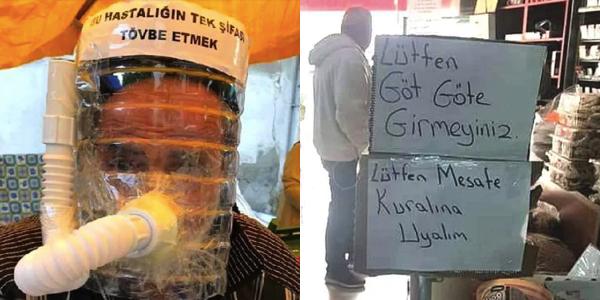 BU HASTALIĞIN TEK ŞİFASI
TÖVBE ETMEK
Lütfen
Göt Göte
Girmeyiniz.
Lütfen Mesafe
Kuralına
Uyalım